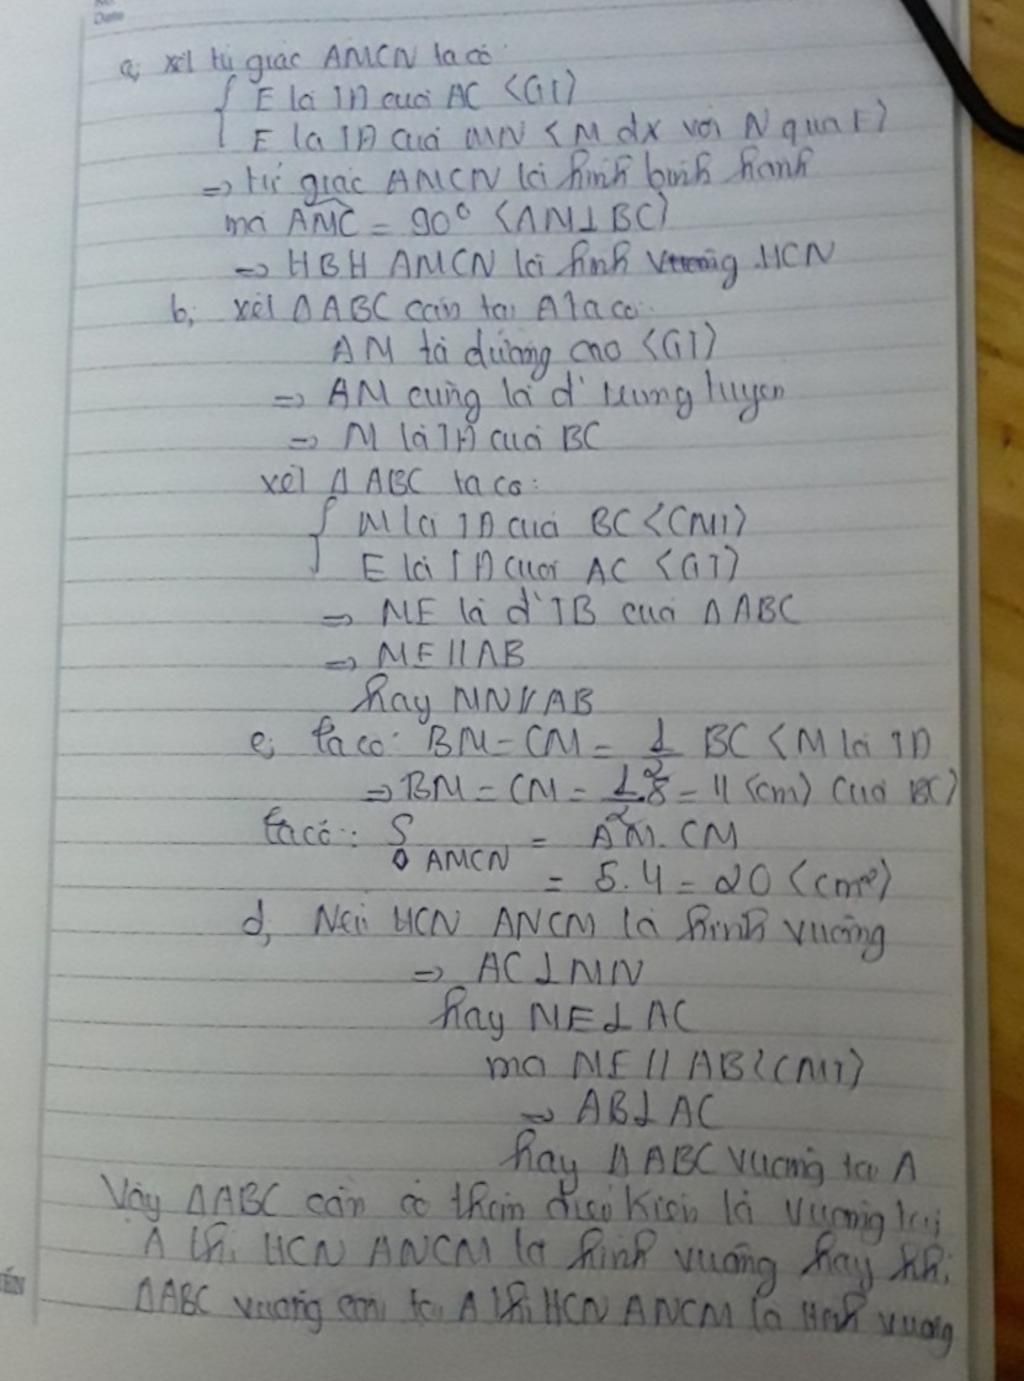 Date
a, xét tứ giác AMCN ta có:
{ E là TĐ của AC <GT>
E là TĐ của MN <M đx với N qua E>
=> tứ giác AMCN là hình bình hành
mà AMC = 90° <AM⊥BC>
=> HBH AMCN là hình HCN
b, xét ΔABC cân tại A ta có:
AM là đường cao <GT>
=> AM cũng là đ' trung tuyến
=> M là TĐ của BC
xét Δ ABC ta có:
{ M là TĐ của BC <CMT>
E là TĐ của AC <GT>
=> ME là đ'TB của ΔABC
=> ME // AB
hay MN // AB
c, ta có: BM = CM = 1/2 BC <M là TĐ
=> BM = CM = 1/2.8 = 4 <cm> của BC>
ta có: S AMCN = AM. CM
= 5.4 = 20 <cm²>
d, Nếu HCN ANCM là hình vuông
=> AC⊥MN
hay ME⊥AC
mà ME // AB <CMT>
=> AB⊥AC
hay ΔABC vuông tại A
Vậy ΔABC cần có thêm điều kiện là vuông tại
A thì HCN ANCM là hình vuông hay khi
ΔABC vuông cân tại A thì HCN ANCM là hình vuông